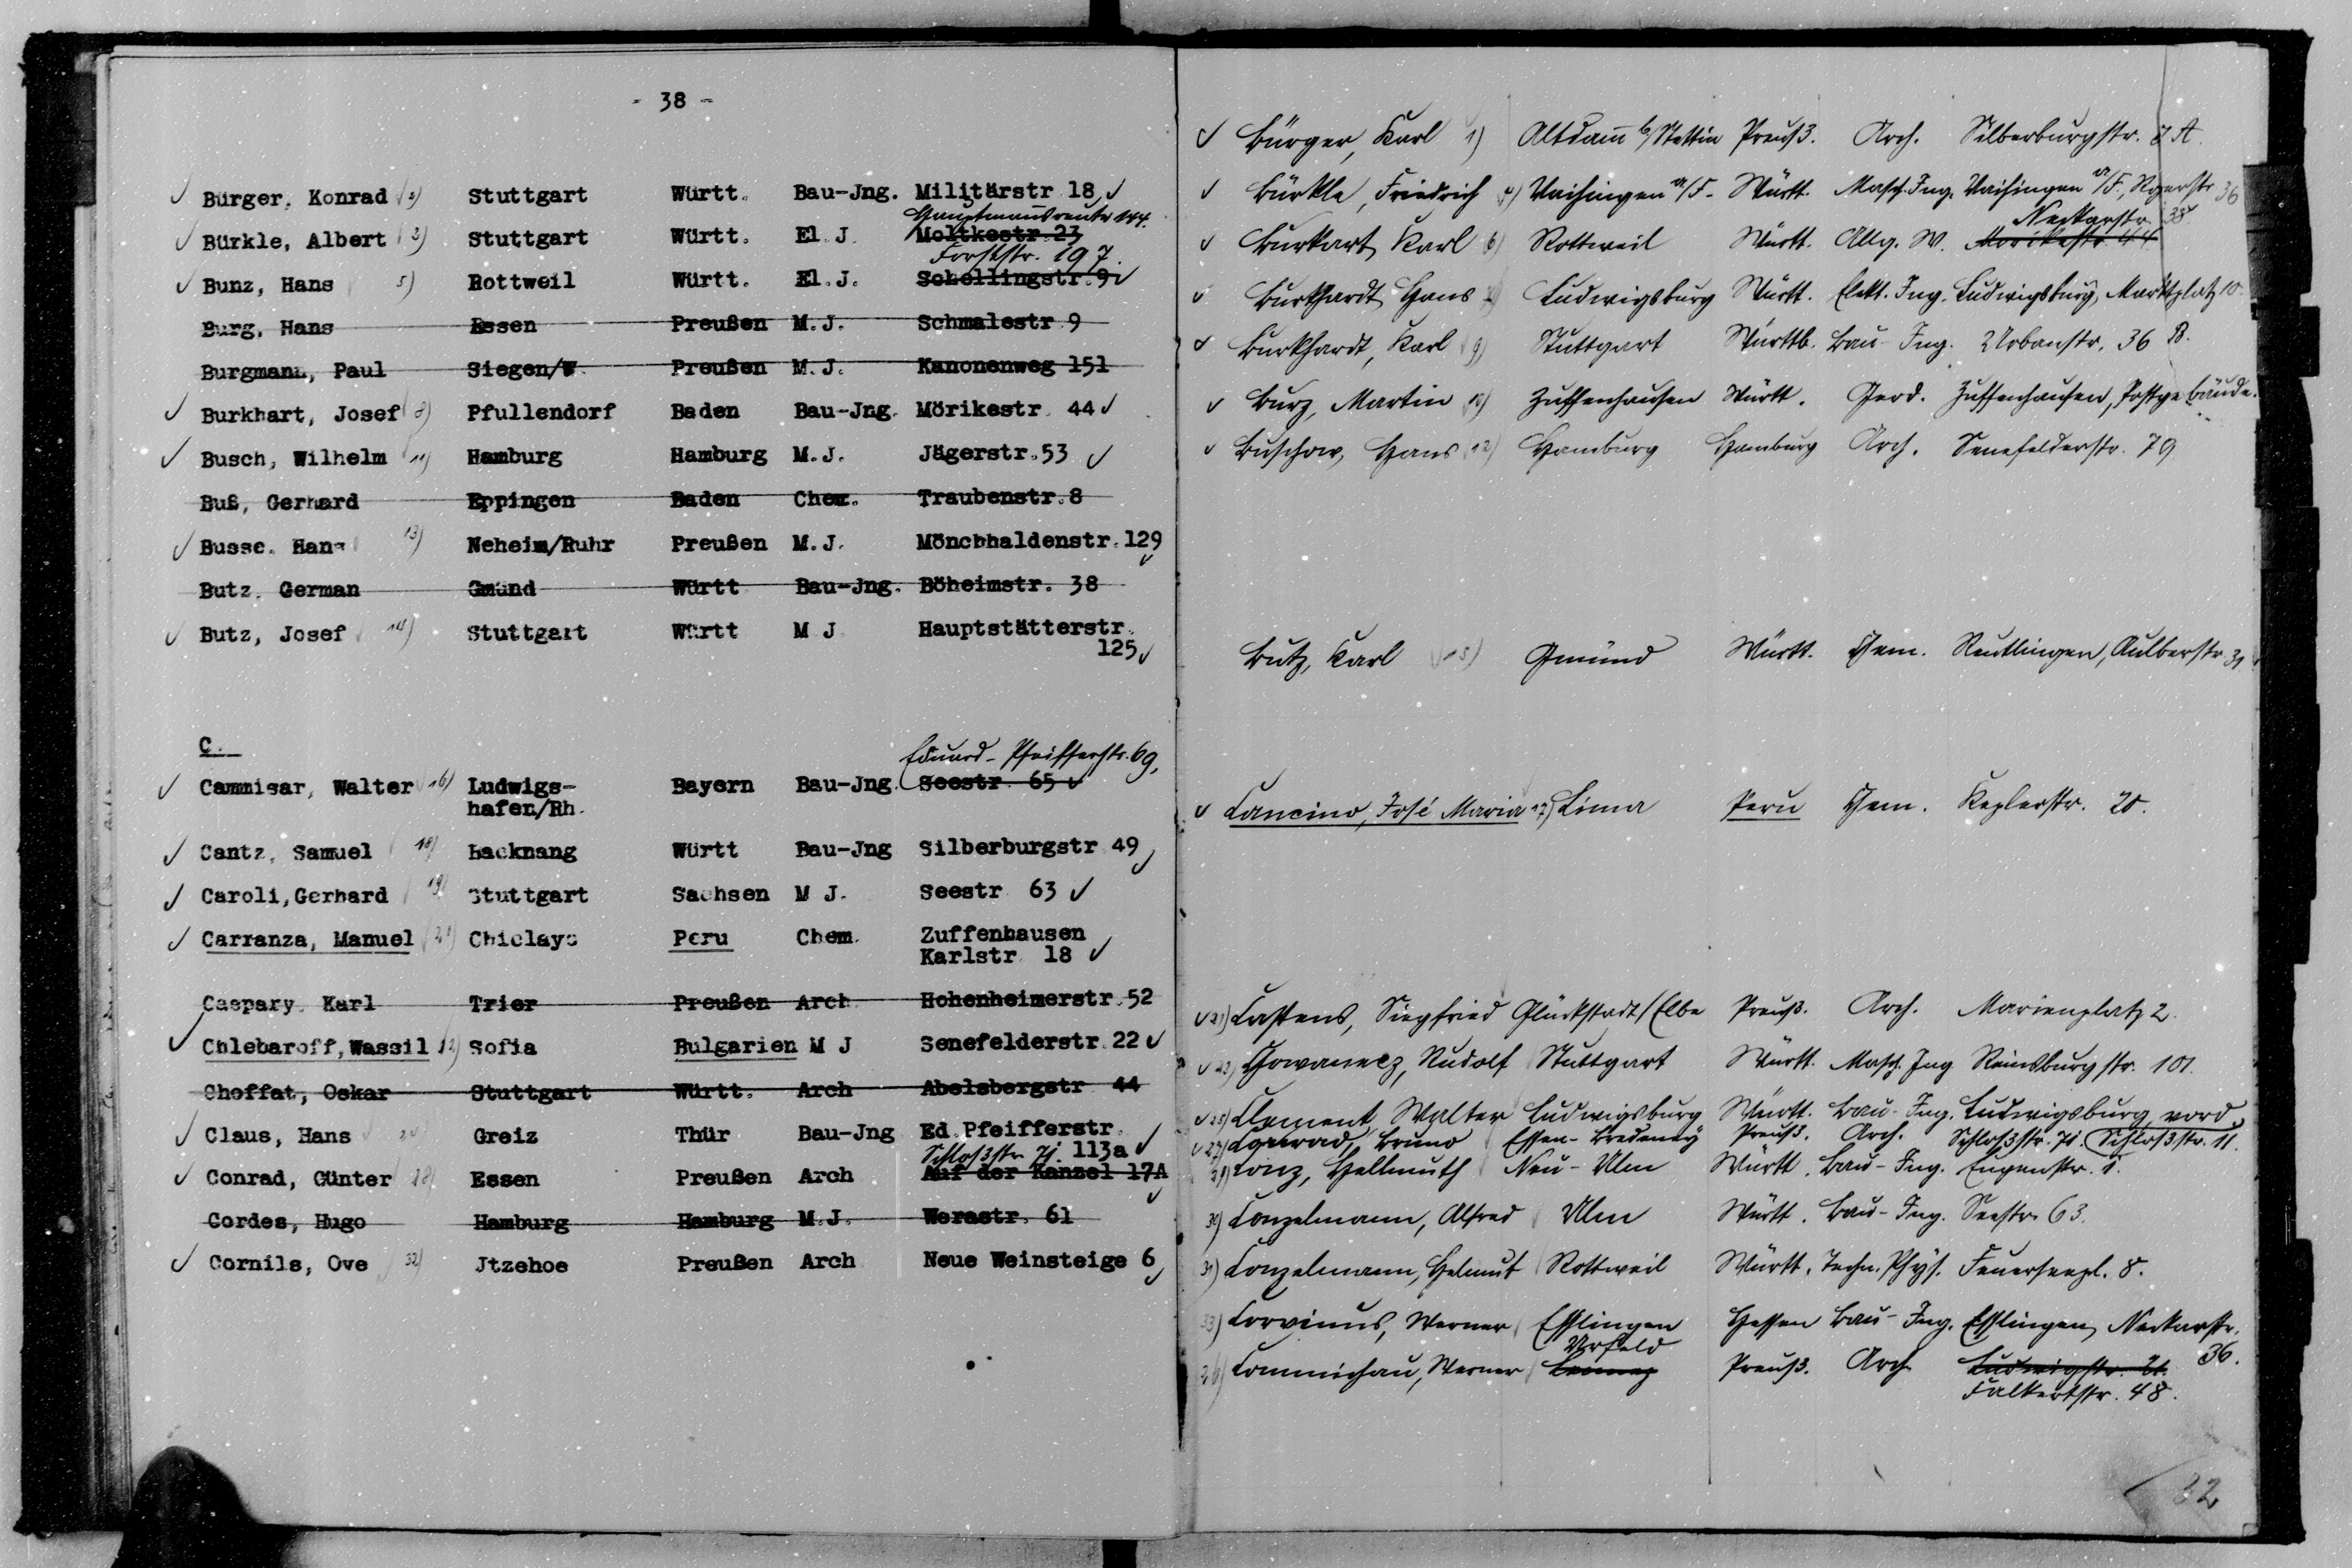 - 38 -
Bürger, Konrad 2) Stuttgart Württ. Bau-Jng. Militärstr 18
Hauptmannsreute 144.
Bürkle, Albert 3) Stuttgart Württ. El. J. Moltkestr. 23
Forststr. 197.
Bunz, Hans 5) Rottweil Württ. El. J. Schellingstr. 9
Burg, Hans Essen Preußen M. J. Schmalestr 9
Burgmann, Paul Siegen/W. Preußen M. J. Kanonenweg 151
Burkhart, Josef 8) Pfullendorf Baden Bau-Jng. Mörikestr 44
Busch, Wilhelm 11) Hamburg Hamburg M. J. Jägerstr. 53
Buß, Gerhard Eppingen Baden Chem. Traubenstr. 8
Busse, Hans 13) Neheim/Ruhr Preußen M. J. Mönchhaldenstr. 129
Butz, German Gmünd Württ Bau-Jng. Böheimstr. 38
Butz, Josef 14) Stuttgart Württ M J Hauptstätterstr.
125
C.
Eduard-Pfeifferstr. 69,
Cammisar, Walter 16) Ludwigs- Bayern Bau-Jng. Seestr 65
hafen/Rh.
Cantz, Samuel 18) Backnang Württ Bau-Jng Silberburgstr 49
Caroli, Gerhard 19) Stuttgart Sachsen M J. Seestr 63
Carranza, Manuel Chiclayo Peru Chem. Zuffenhausen
Karlstr 18
Caspary, Karl Trier Preußen Arch Hohenheimerstr. 52
Chlebaroff, Wassil Sofia Bulgarien M J Senefelderstr. 22
Choffat, Oskar Stuttgart Württ. Arch Abelsbergstr 44
Claus, Hans Greiz Thür Bau-Jng Ed. Pfeifferstr.
Schloßstr. 71. 113a
Conrad, Günter 28) Essen Preußen Arch Auf der Kanzel 17A
Cordes, Hugo Hamburg Hamburg M. J. Werastr. 61
Cornils, Ove 32) Jtzehoe Preußen Arch Neue Weinsteige 6
Bürger, Karl 1) Altdam b/Stettin Preuß. Arch. Silberburgstr. A.
Bürkle, Friedrich 4) Vaihingen a/F. Württ. Masch. Ing. Vaihingen a/F., 36
Neckarstr. 38
Burkart, Karl 6) Rottweil Württ. Allg. W. Mörikestr. 44
Burkhardt, Hans Ludwigsburg Württ. Elekt. Ing. Ludwigsburg, Marktplatz 10.
Burkhardt, Karl 9) Stuttgart Württb. Bau-Ing. Urbanstr. 36 B.
Burz, Martin 10) Zuffenhausen Württ. Geod. Zuffenhausen, Postgebäude.
Buschow, Hans 12) Hamburg Hamburg Arch. Senefelderstr. 79
Butz, Karl 15) Gmünd Württ. Chem. Reutlingen, Aulberstr. 31
Cancino, José Maria 17) Lima Peru Chem. Keplerstr. 20.
21) Castens, Siegfried Glückstadt/Elbe Preuß. Arch. Marienplatz 2.
23) Chowanecz, Rudolf Stuttgart Württ. Masch. Ing Reinsburgstr. 101.
25) Clement, Walter Ludwigsburg Württ. Bau-Ing. Ludwigsburg, vord.
27) Conrad, Bruno Essen-Bredeney Preuß. Arch. Schloßstr. 71. Schloßstr. 11.
Conz, Hellmuth Neu-Ulm Württ. Bau-Ing. Eugenstr. 1.
30) Conzelmann, Alfred Ulm Württ. Bau-Ing. Seestr. 63.
31) Conzelmann, Helmut Rottweil Württ. Techn. Phys. Feuerseepl. 8.
33) Corvinus, Werner Esslingen Hessen Bau-Ing. Esslingen, Neckarstr.
Urfeld 36.
26) Commichau, Werner Preuß. Arch Ludwigstr.
Falkertstr. 48.
32